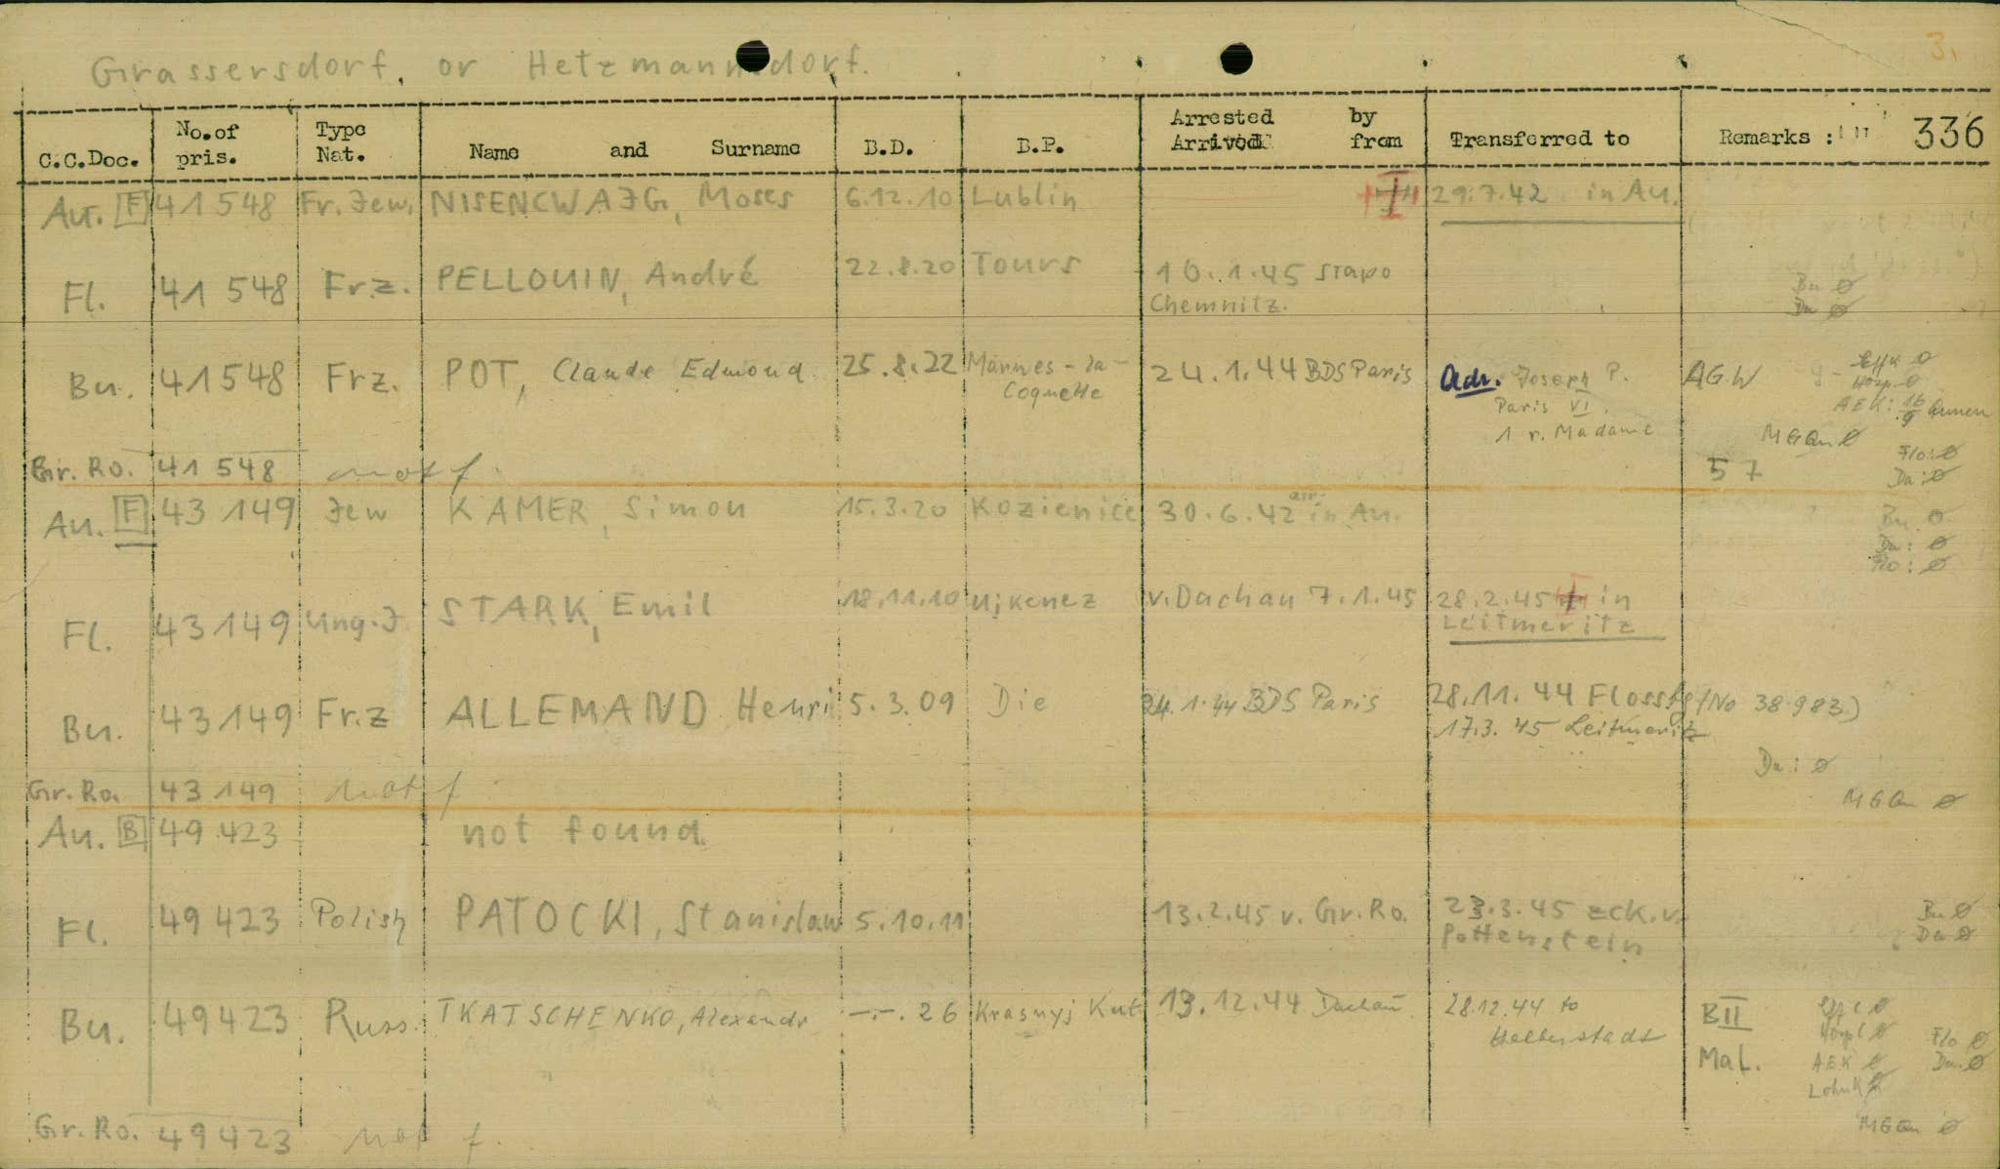 3.
Grassersdorf, or Hetzmannsdorf.
C.C.Doc. No.of pris. Type Nat. Name and Surname B.D. B.P. Arrested by Arrived from Transferred to Remarks : 336
Au. F 41548 Fr. Jew. NISENCWAJG, Moses 6.12.10 Lublin 29.7.42 in Au.
Fl. 41 548 Frz. PELLOUIN, André 22.8.20 Tours 10.1.45 Stapo
Chemnitz.
Bu ø
Da ø
Bu. 41548 Frz. POT, Claude Edmond 25.8.22 Marnes-la-
Coquette
24.1.44 BDS Paris
Adr. Joseph P.
Paris VI.
1 r. Madame
AGW
AEK: 16/9
MGQu ø
Flo: ø
Da: ø
Gr. Ro. 41 548 not f. 57
Au. F 43 149 Jew KAMER, Simon 15.3.20 Kozienice 30.6.42 in Au.
Bu ø
Da: ø
Flo: ø
Fl. 43149 Ung.J. STARK, Emil 18.11.10 Ujkenez v. Dachau 7.1.45 28.2.45 in
Leitmeritz
Bu. 43149 Frz ALLEMAND Henri 5.3.09 Die 24.1.44 BDS Paris 28.11.44 Flossbg (No 38 983)
17.3.45 Leitmeritz
Da: ø
Gr. Ro. 43 149 not f
MGQu ø
Au. B 49 423 not found
Fl. 49 423 Polish PATOCKI, Stanislaw 5.10.11 13.2.45 v. Gr. Ro. 23.3.45 zck. v.
Pottenstein
Bu ø
Da ø
Bu. 49423 Russ. TKATSCHENKO, Alexandr -.-.26 Krasnyj Kut 13.12.44 Dachau 28.12.44 to
Halberstadt
BII
Mal.
AEK ø
Flo ø
Da. ø
MGQu ø
Gr. Ro. 49423 not f.